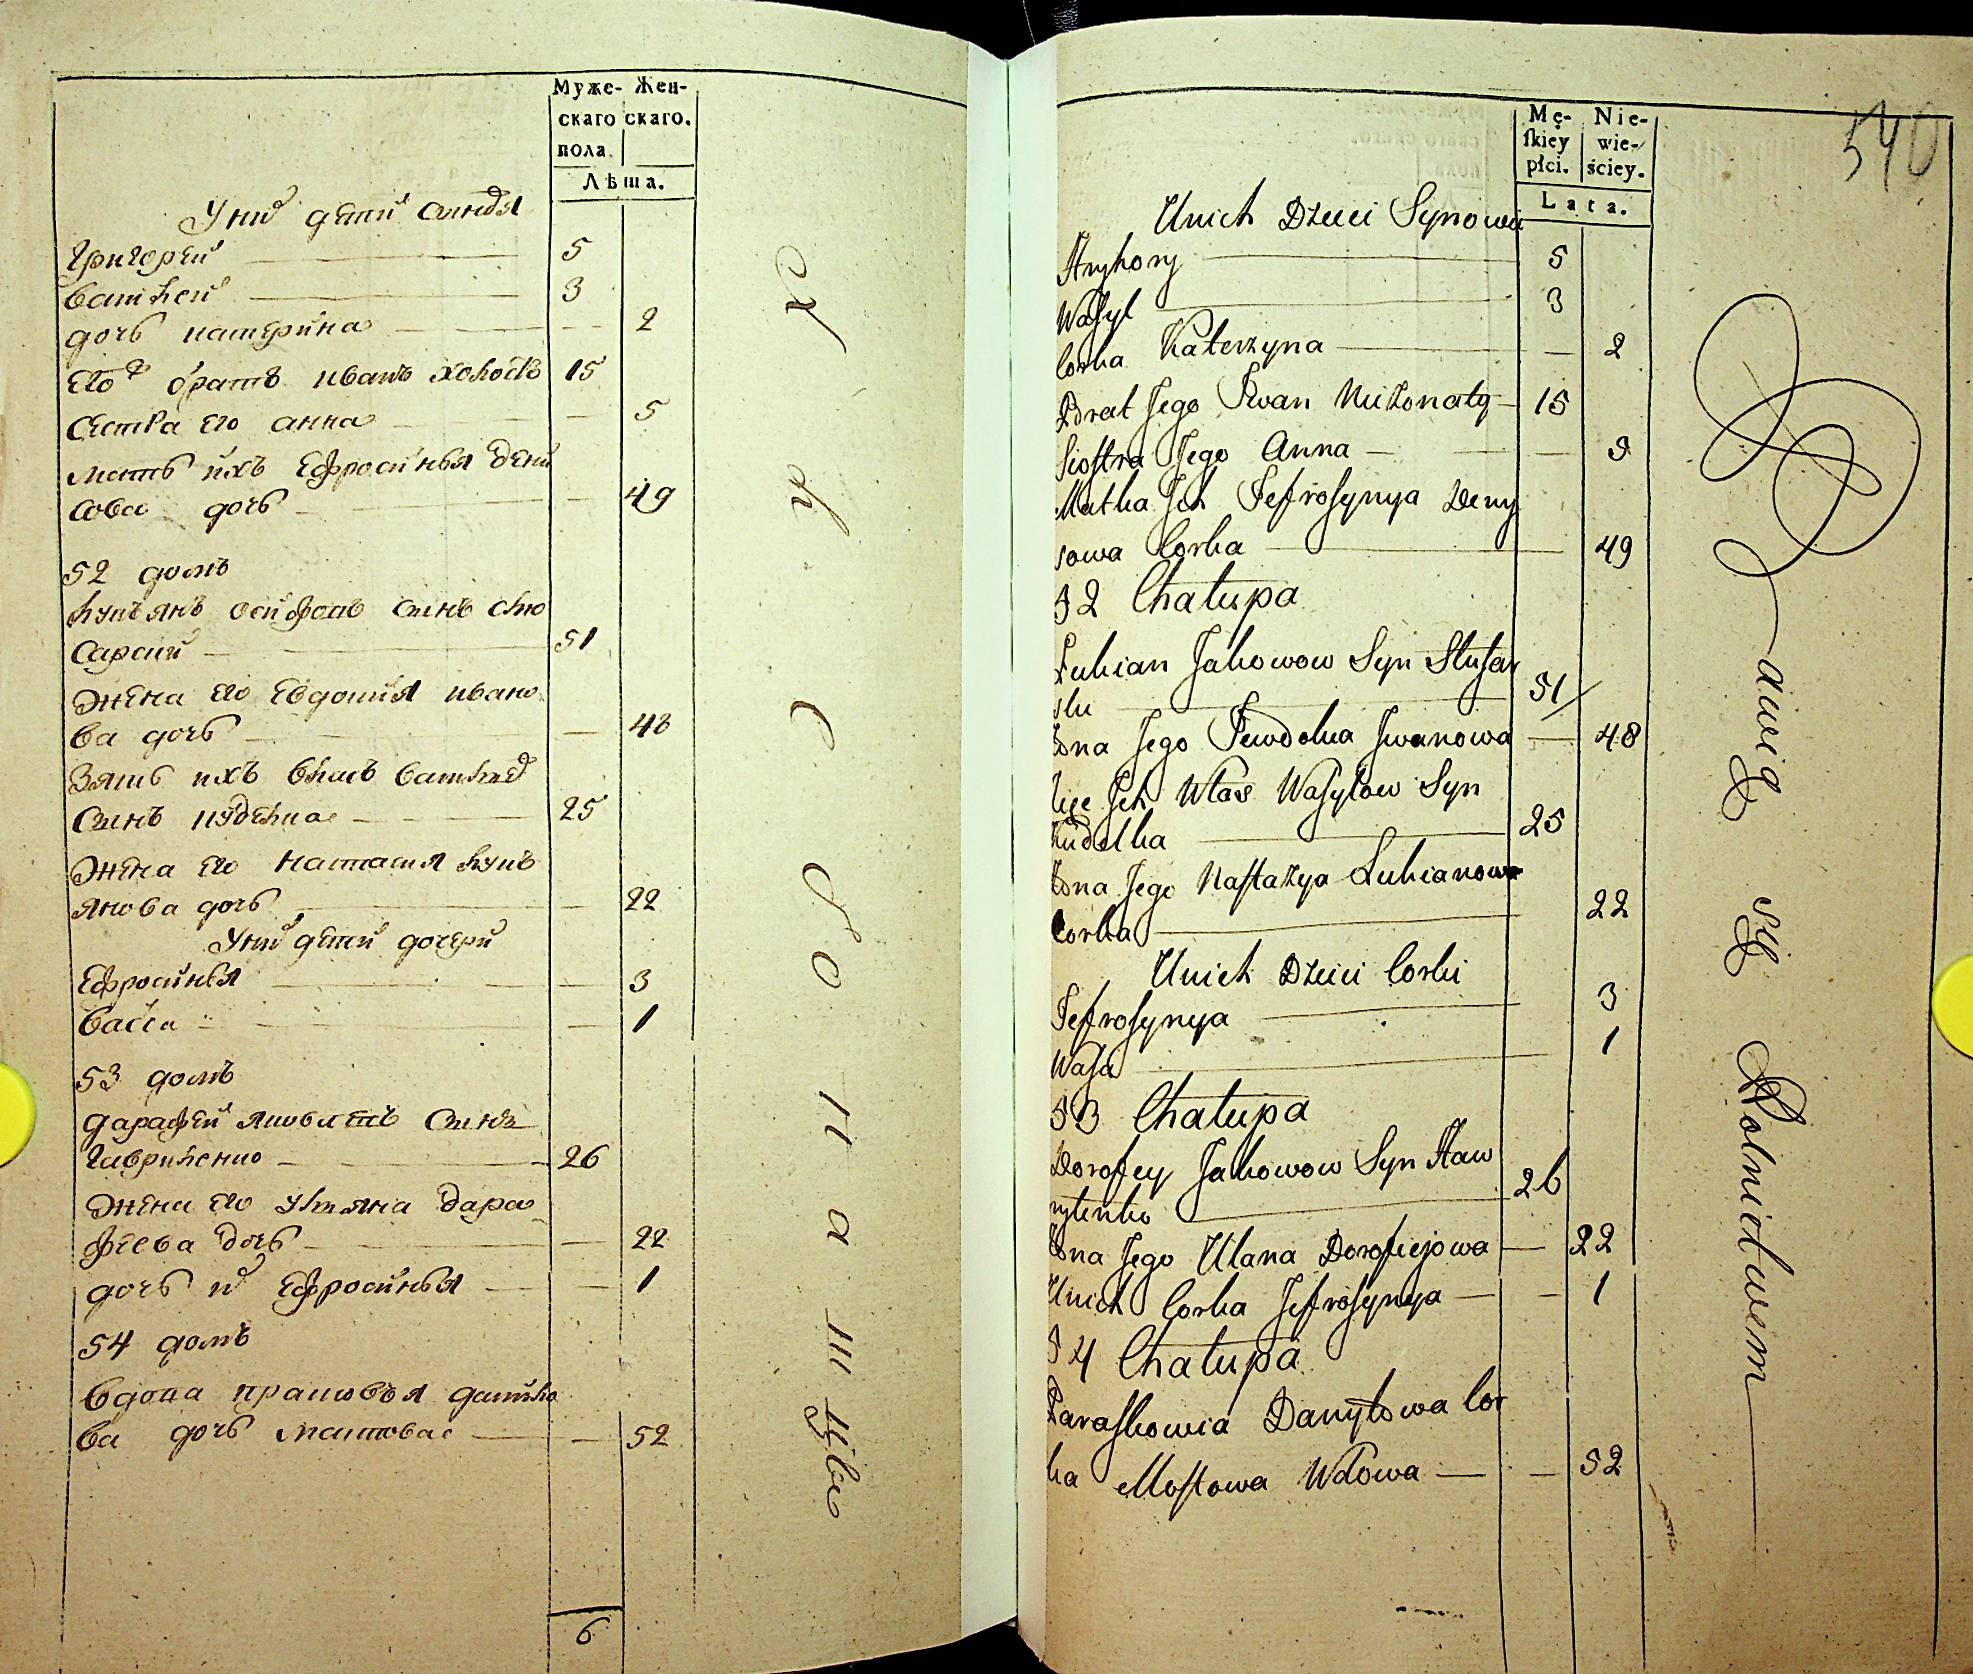 Муже- Жен-
скаго скаго.
пола.
Лѣта.
У них дети синовя
Григорей 5
Василей 3
дочь катерина 2
Его братъ иванъ холостъ 15
Сестра его анна 5
мать ихъ Ефросинья Дени
сова дочь 49
52 домъ
лукъянъ осиповъ синъ слю
сарский 51
жена его Евдокия ивано
ва дочь 48
Зять ихъ власъ василев
синъ кудел­ка 25
жена его настасия лукъ
янова дочь 22
У них дети дочери
Ефросинья 3
васса 1
53 домъ
дарафей яковлевъ синъ
гавриленко 26
жена его ульяна дара
феева дочь 22
дочь их Ефросинья 1
54 домъ
вдова прасковья данило
ва дочь мостовая 52
6
Mę- Nie-
skiey wie-
płci. ściey.
Lata.
540
Unich Dzieci Synowie
Hryhory 5
Wasyl 3
Corka Katerzyna 2
Brat Jego Iwan Nieżonaty 15
Siostra Jego Anna 5
Matka Ich Jefrosynya Deny
sowa Corka 49
52 Chałupa
Łukian Jakowow Syn Slusar
ski 51
Żona Jego Jewdokia Iwanowa 48
Zięć Ich Włas Wasylow Syn
Kudelka 25
Żona Jego Nastazya Łukianowa
Corka 22
Unich Dzieci Corki
Jefrosynya 3
Wasa 1
53 Chałupa
Dorofey Jakowow Syn Haw
rylenko 26
Żona Jego Ulana Dorofiejowa 22
Unich Corka Jefrosynya 1
54 Chałupa
Paraskowia Danyłowa Cor
ka Mostowa Wdowa 52
Bawią się Rolnictwem